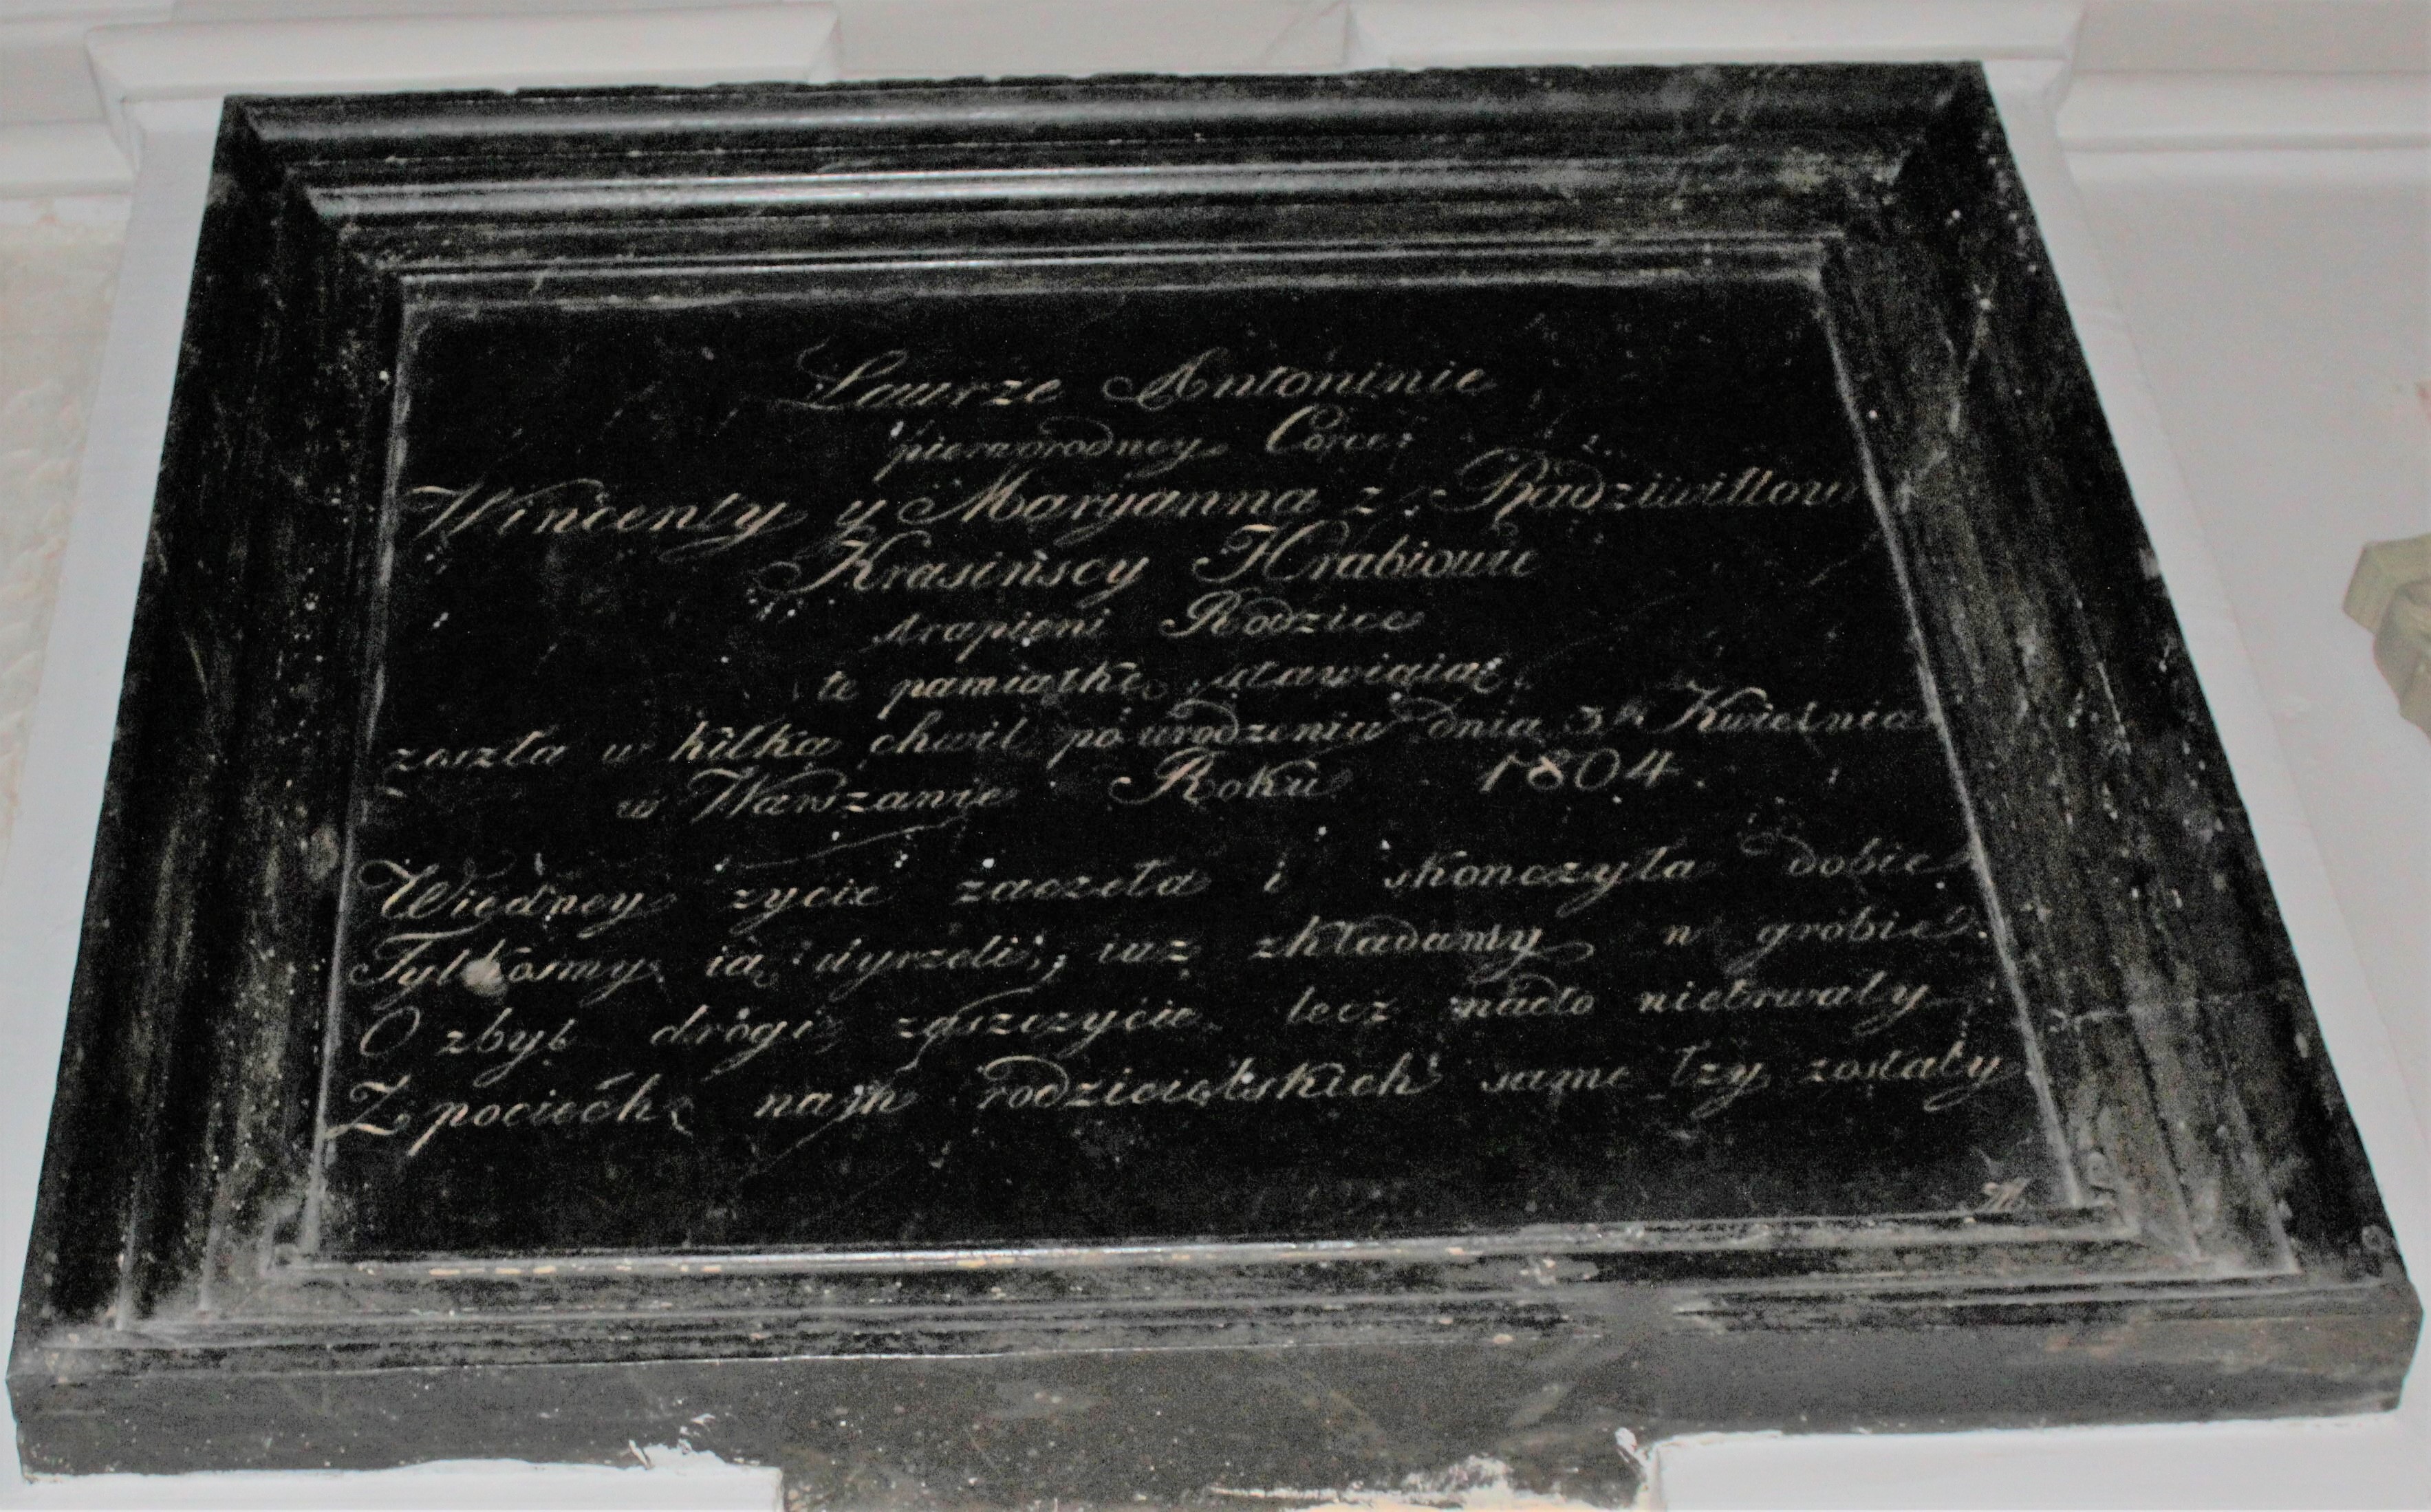 Laurze Antoninie
pierworodney Córce
Wincenty y Maryanna z Radziwiłłow
Krasińscy Hrabiowie
strapieni Rodzice
te pamiątkę stawiaią
zeszła w kilka chwil po urodzeniu dnia Kwietnia
w Warszawie Roku 1804
Wiedney zycie zaczeła i skonczyła dobie
Tylkośmy ią uyrzeli, iuz składamy w gróbie
O zbyt drogi zaszczycie lecz nadto nietrwały
Z pociech nash rodzicielskich same łzy zostały
M